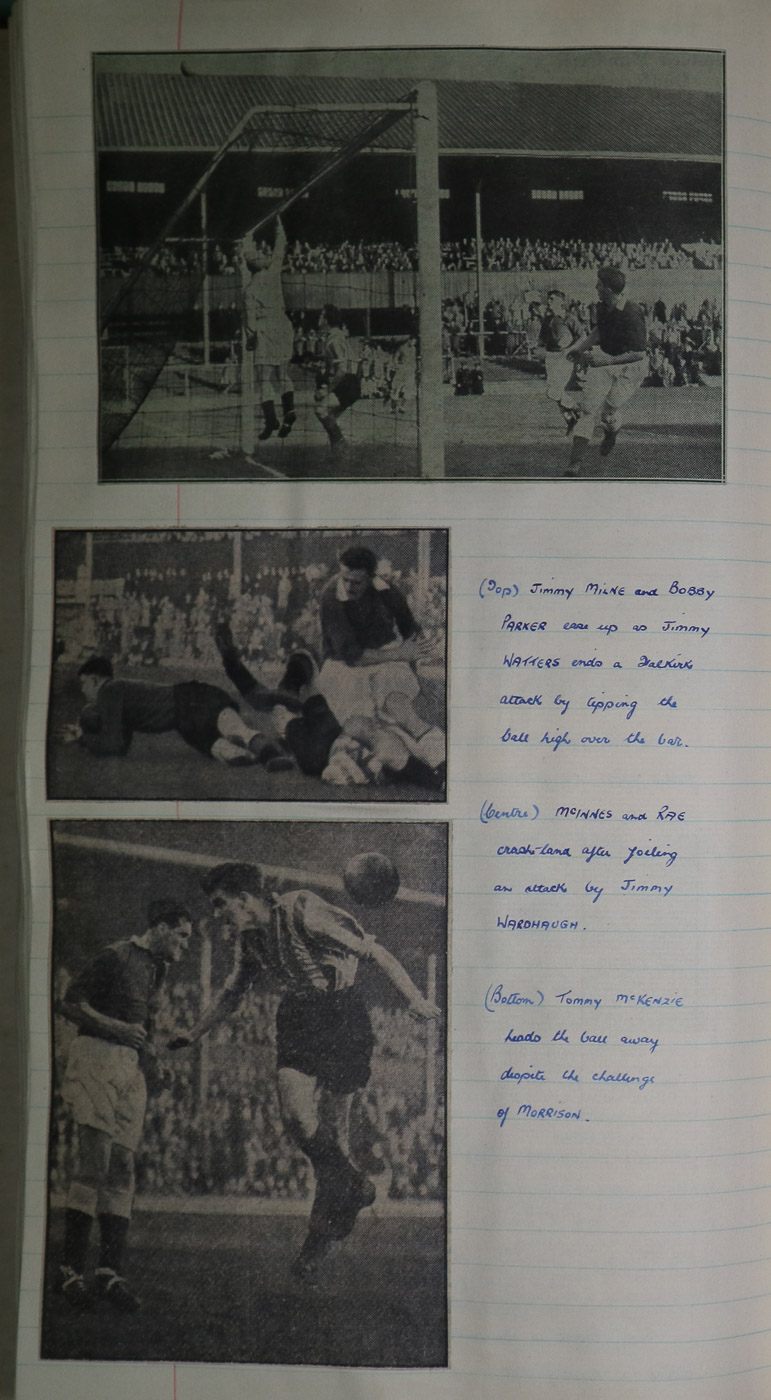 (Top) Jimmy MILNE and BOBBY
PARKER ease up as Jimmy
WATTERS ends a Falkirk
attack by tipping the
ball high over the bar.
(Centre) McINNES and RAE
crash-land after foiling
an attack by Jimmy
WARDHAUGH.
(Bottom) Tommy McKENZIE
heads the ball away
despite the challenge
of MORRISON.